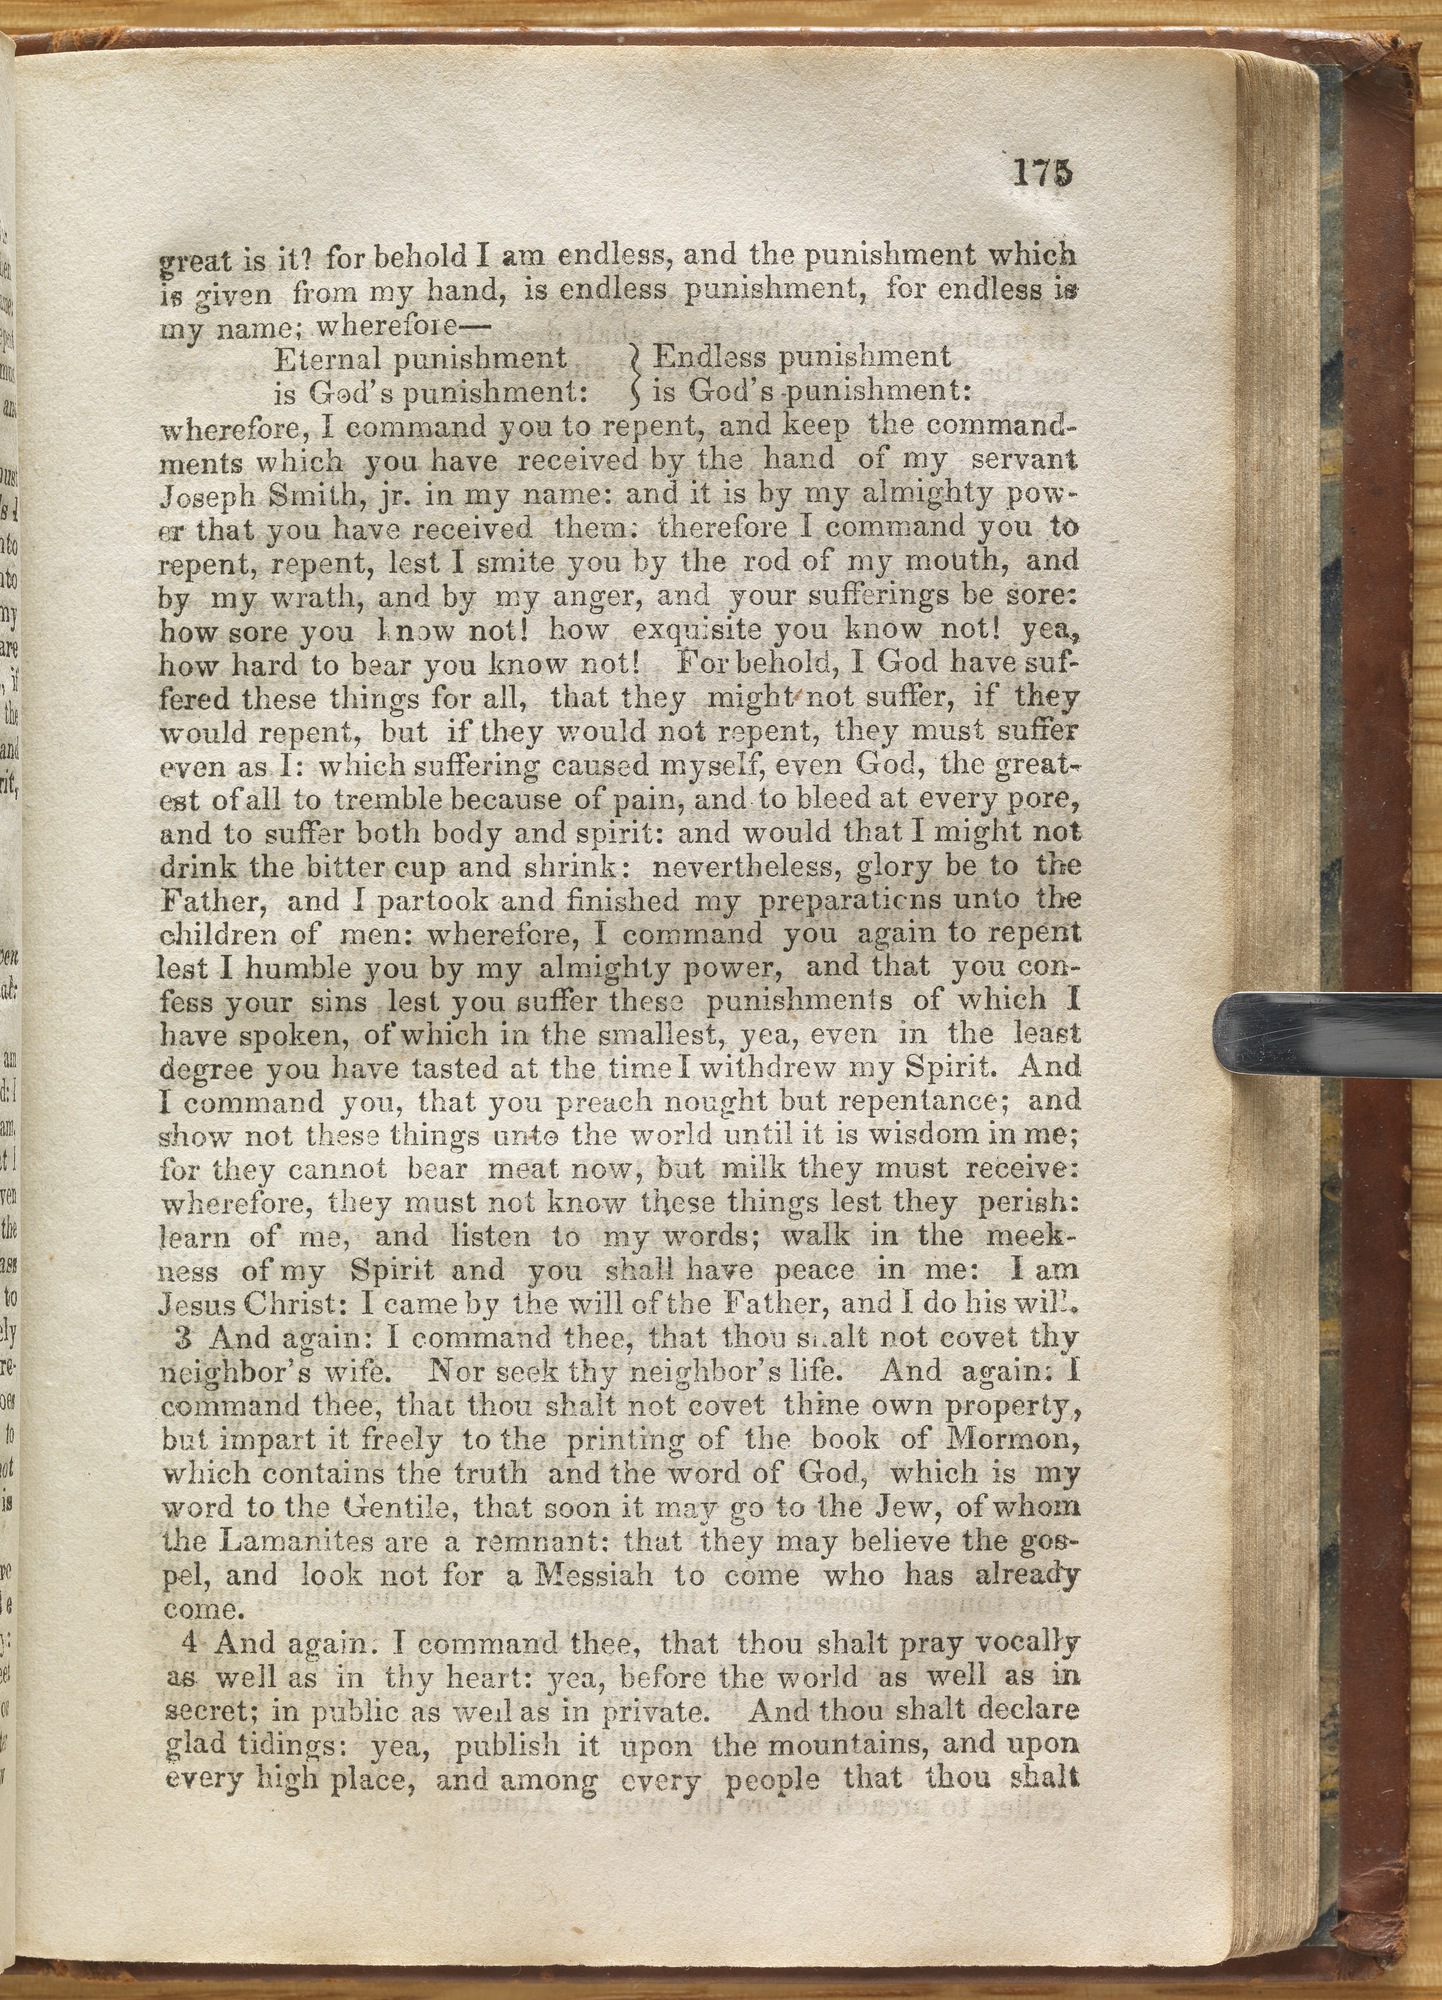 175
great is it? for behold I am endless, and the punishment which
is given from my hand, is endless punishment, for endless is
my name; wherefore—
Eternal punishment } Endless punishment
is God's punishment: } is God's punishment:
wherefore, I command you to repent, and keep the command-
ments which you have received by the hand of my servant
Joseph Smith, jr. in my name: and it is by my almighty pow-
er that you have received them: therefore I command you to
repent, repent, lest I smite you by the rod of my mouth, and
by my wrath, and by my anger, and your sufferings be sore:
how sore you know not! how exquisite you know not! yea,
how hard to bear you know not! For behold, I God have suf-
fered these things for all, that they might not suffer, if they
would repent, but if they would not repent, they must suffer
even as I: which suffering caused myself, even God, the great-
est of all to tremble because of pain, and to bleed at every pore,
and to suffer both body and spirit: and would that I might not
drink the bitter cup and shrink: nevertheless, glory be to the
Father, and I partook and finished my preparations unto the
children of men: wherefore, I command you again to repent
lest I humble you by my almighty power, and that you con-
fess your sins lest you suffer these punishments of which I
have spoken, of which in the smallest, yea, even in the least
degree you have tasted at the time I withdrew my Spirit. And
I command you, that you preach nought but repentance; and
show not these things unto the world until it is wisdom in me;
for they cannot bear meat now, but milk they must receive:
wherefore, they must not know these things lest they perish:
learn of me, and listen to my words; walk in the meek-
ness of my Spirit and you shall have peace in me: I am
Jesus Christ: I came by the will of the Father, and I do his will.
3 And again: I command thee, that thou shalt not covet thy
neighbor's wife. Nor seek thy neighbor's life. And again: I
command thee, that thou shalt not covet thine own property,
but impart it freely to the printing of the book of Mormon,
which contains the truth and the word of God, which is my
word to the Gentile, that soon it may go to the Jew, of whom
the Lamanites are a remnant: that they may believe the gos-
pel, and look not for a Messiah to come who has already
come.
4 And again. I command thee, that thou shalt pray vocally
as well as in thy heart: yea, before the world as well as in
secret; in public as well as in private. And thou shalt declare
glad tidings: yea, publish it upon the mountains, and upon
every high place, and among every people that thou shalt